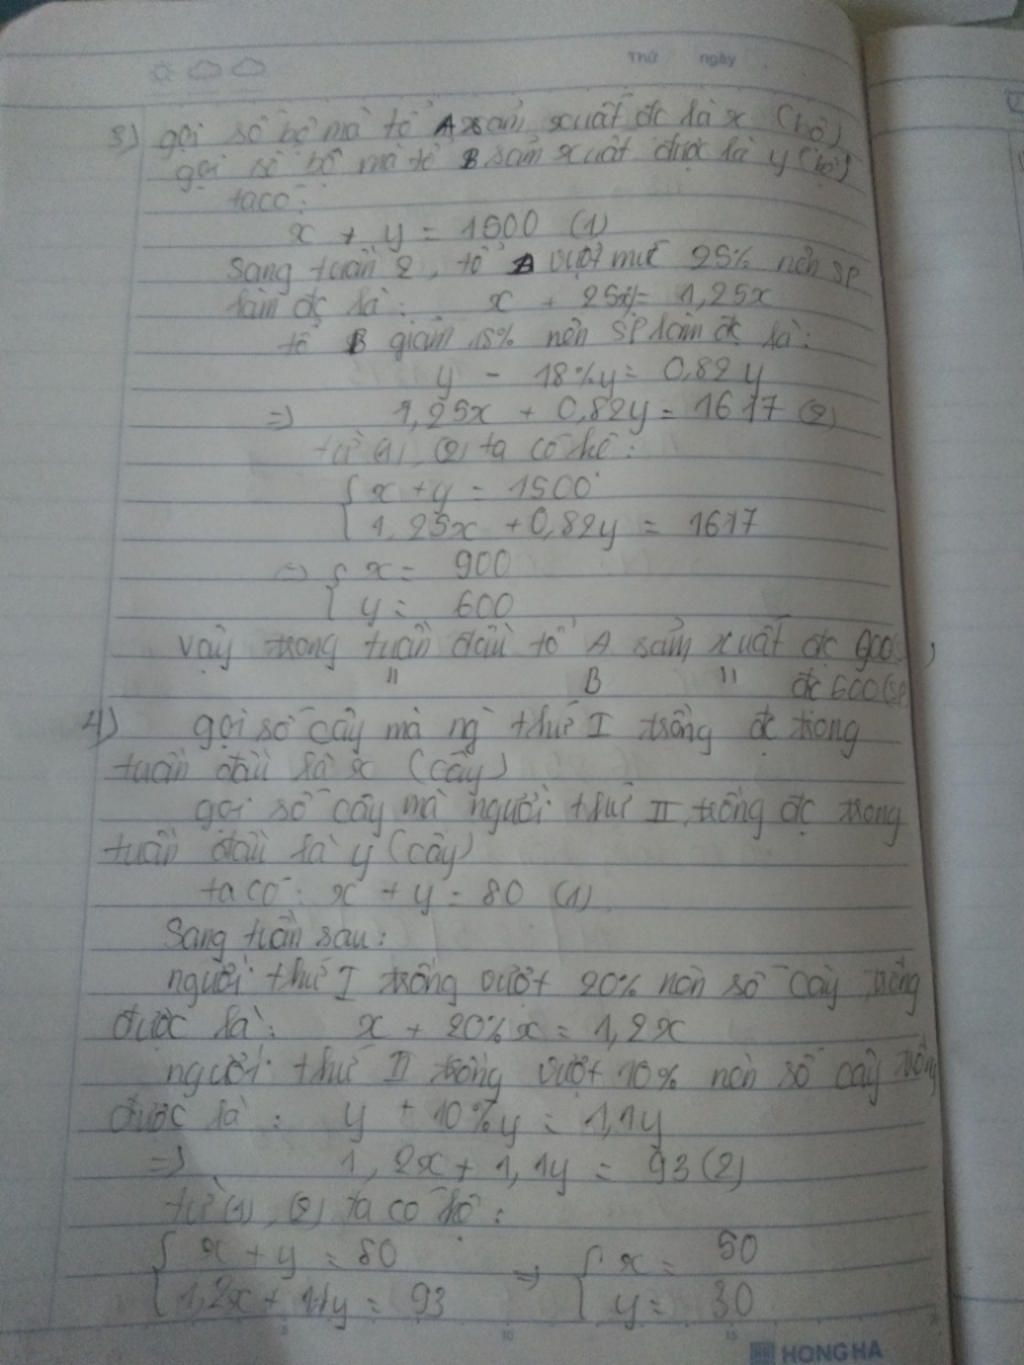 Thứ ngày
3) gọi số bộ mà tổ A sản xuất đc là x (bộ)
gọi số bộ mà tổ B sản xuất được là y (bộ)
ta có:
x + y = 1500 (1)
Sang tuần 2, tổ A vượt mức 25% nên SP
làm đc là: x + 25% = 1,25x
tổ B giảm 18% nên SP làm đc là:
y - 18%y = 0,82y
=> 1,25x + 0,82y = 1617 (2)
từ (1), (2) ta có hệ:
{ x + y = 1500
1,25x + 0,82y = 1617
=> { x = 900
y = 600
vậy trong tuần đầu tổ A sản xuất đc 900
" B " đc 600 (SP
4) gọi số cây mà ng thứ I trồng đc trong
tuần đầu là x (cây)
gọi số cây mà người thứ II trồng đc trong
tuần đầu là y (cây)
ta có: x + y = 80 (1)
Sang tuần sau:
người thứ I trồng vượt 20% nên số cây trồng
được là: x + 20%x = 1,2x
người thứ II trồng vượt 10% nên số cây trồng
được là: y + 10%y = 1,1y
=> 1,2x + 1,1y = 93 (2)
từ (1), (2) ta có hệ:
{ x + y = 80 => { x = 50
1,2x + 1,1y = 93 y = 30
5 10 15
HONG HA